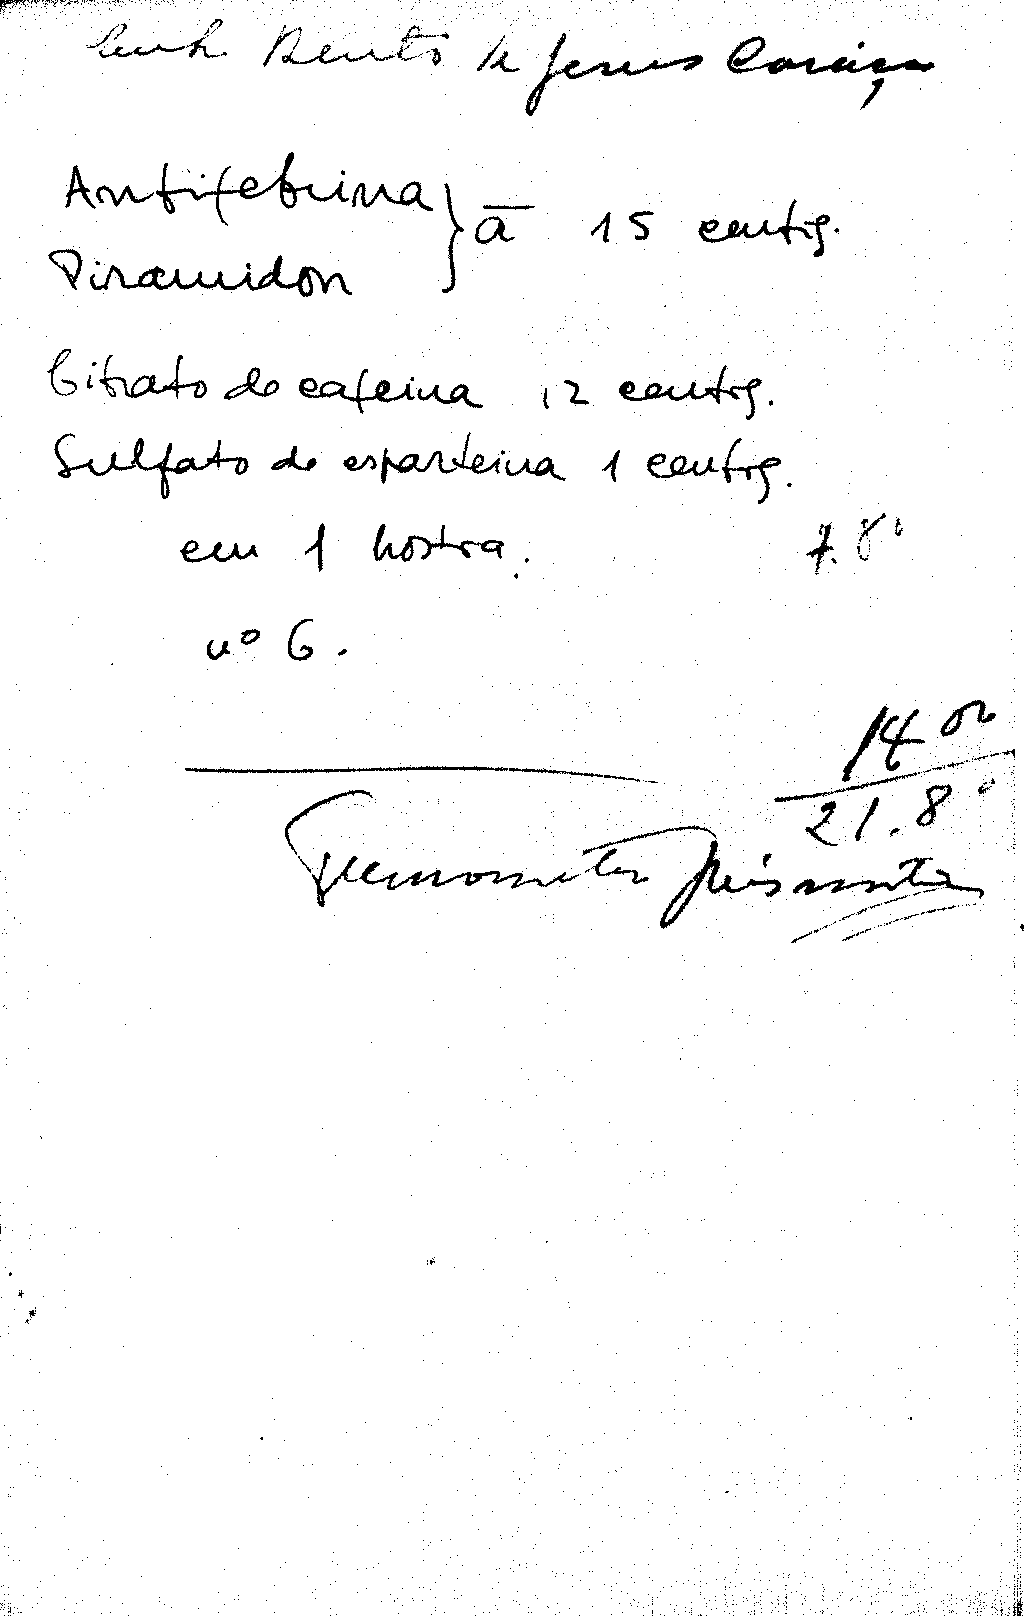 Bento de Jesus Caraça
Antifebrina
Piramidon } ā 15 centig.
Citrato de cafeina 12 centig.
Sulfato de esparteina 1 centig.
em 1 hostia. 7.8⁰
nº 6.
14 00
21.8⁰
Termometro